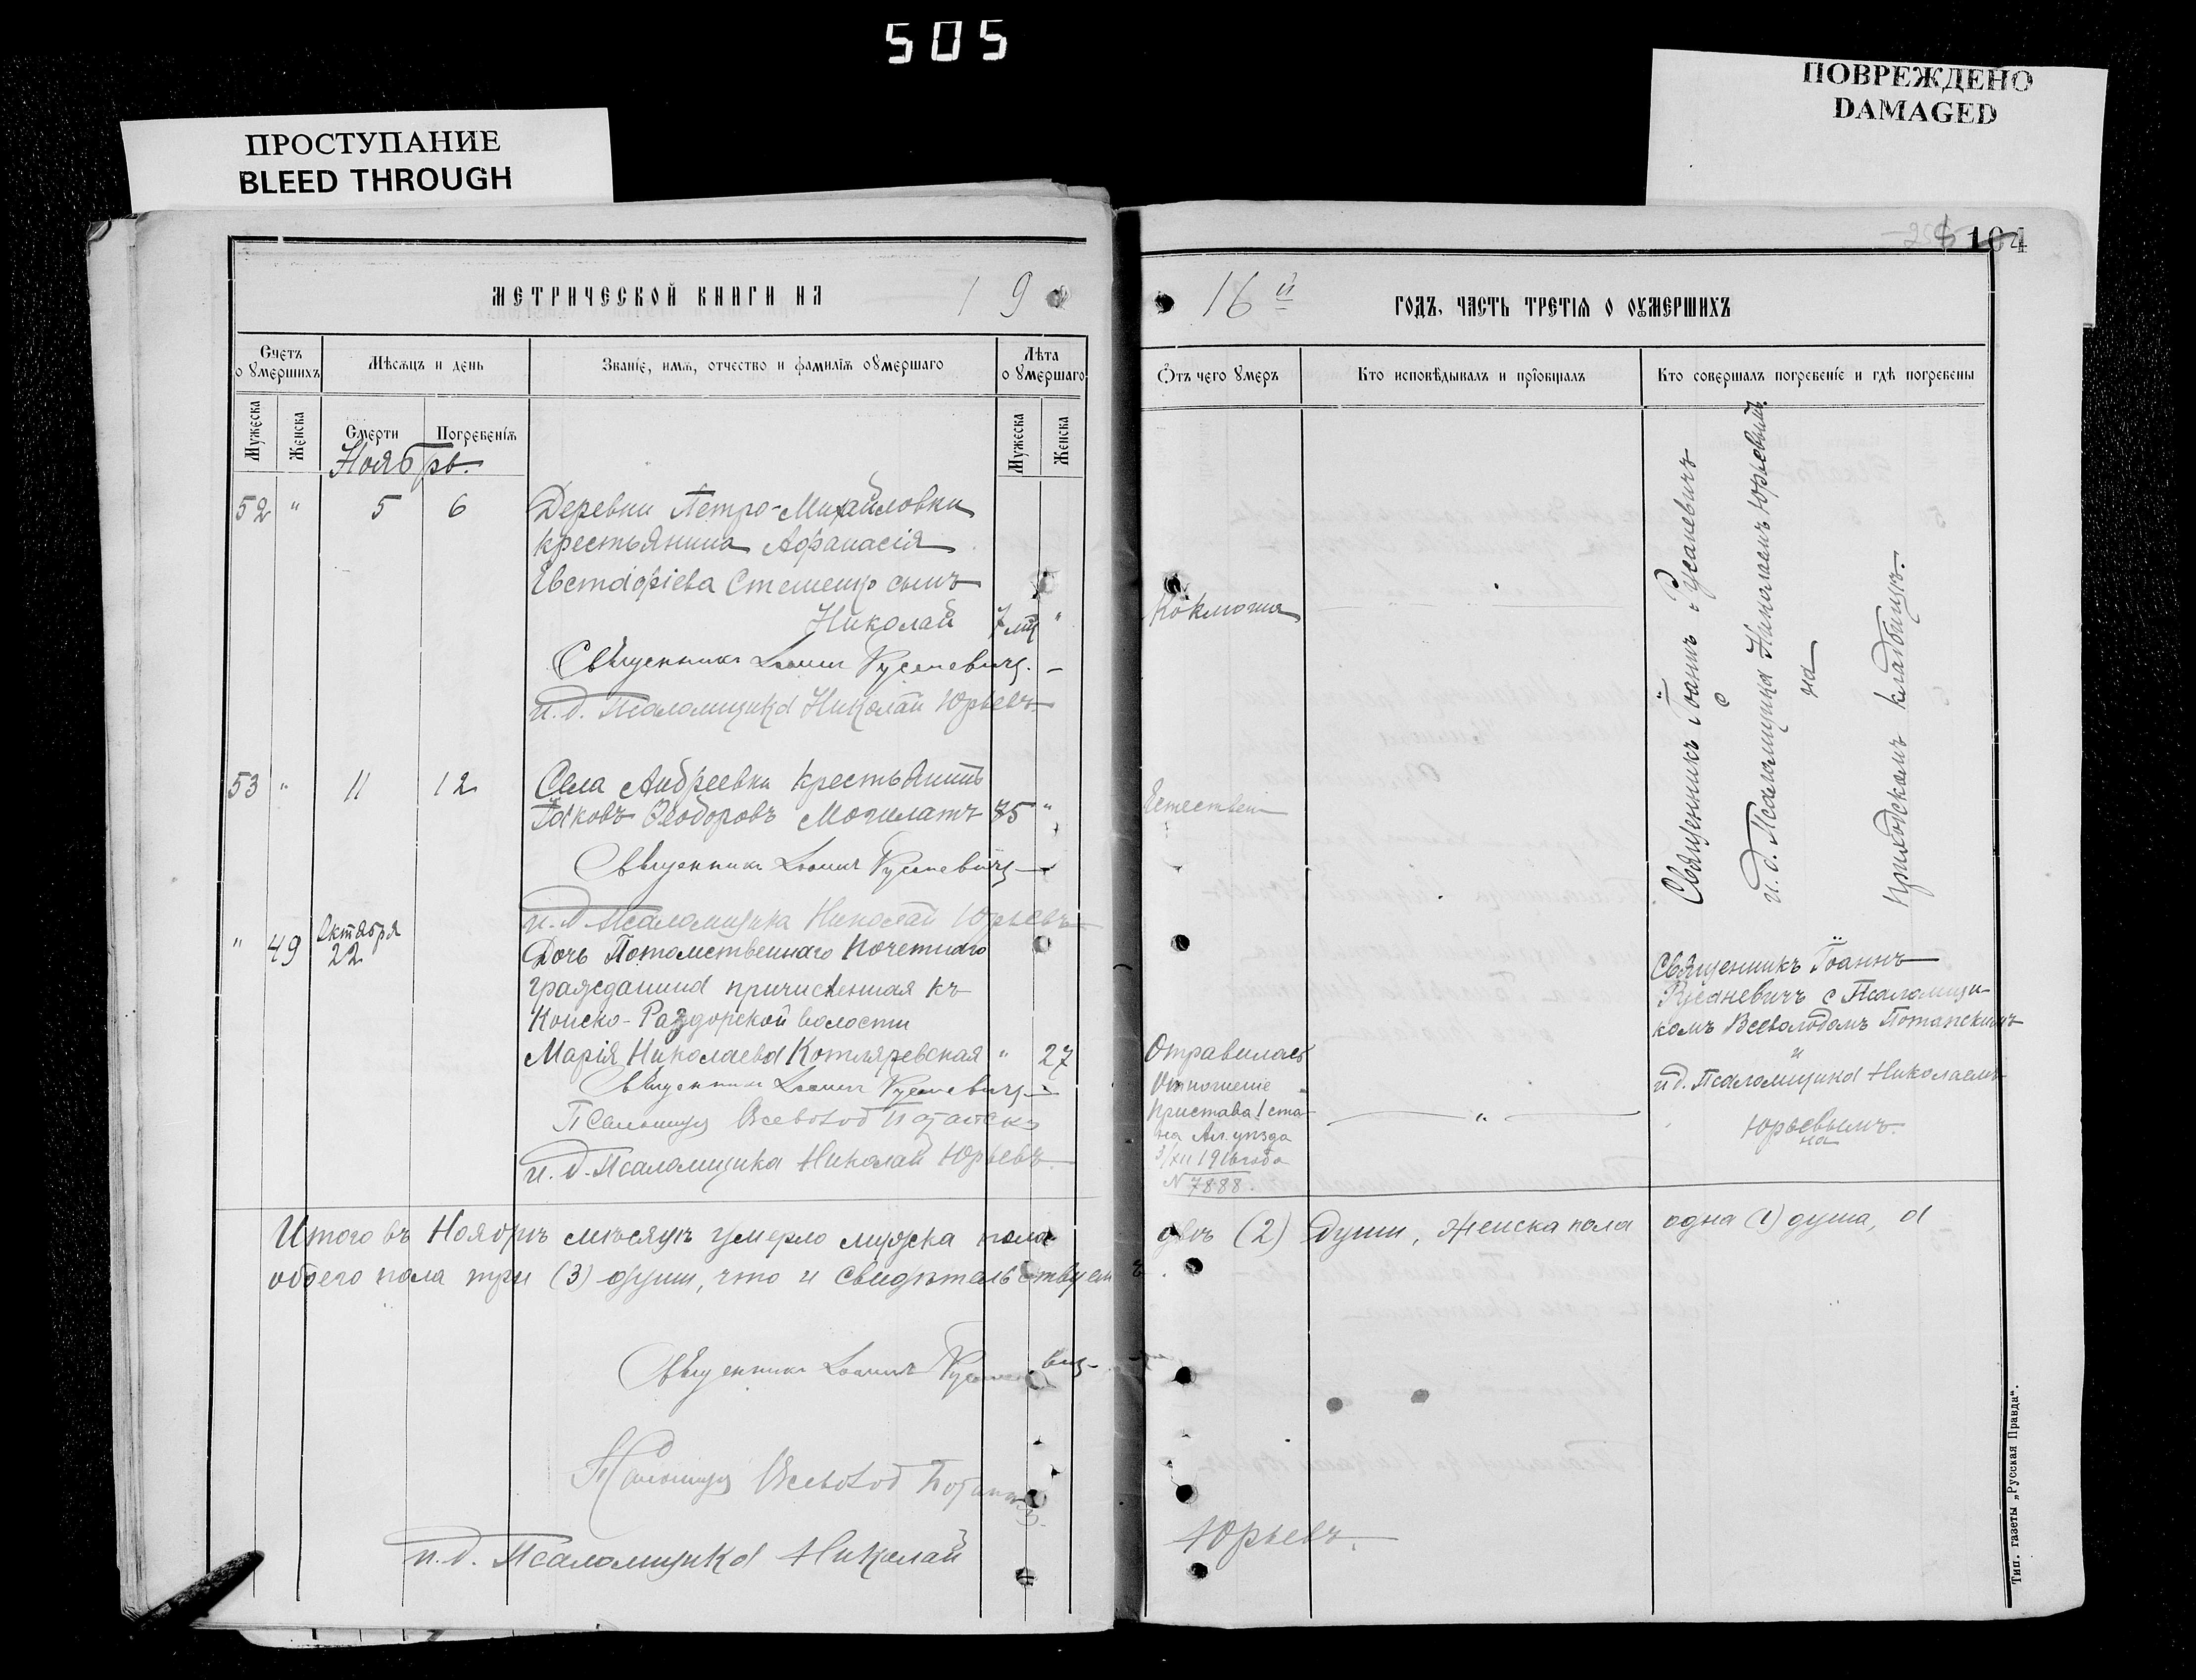 505
ПРОСТУПАНИЕ
BLEED THROUGH
ПОВРЕЖДЕНО
DAMAGED
104
МЕТРИЧЕСКОЙ КНИГИ НА 19
Счетъ о умершихъ
Мѣсяцъ и день
Званіе, имя, отчество и фамилія оумершаго
Лѣта оумершаго
Мужеска
Женска
Смерти
Погребенія
Мужеска
Женска
Ноябрь.
52 " 5 6 Деревни Петро-Михайловки
крестьянина Афанасія
Евстафіева сынъ
Николай 7 "
Священникъ Іоаннъ Русаневичъ
и. д. Псаломщика Николай Юрьевъ
53 " 11 12 Села Андреевки крестьянинъ
Іаковъ Ѳеодоровъ Могилатъ 85 "
Священникъ Іоаннъ Русаневичъ
и. д. Псаломщика Николай Юрьевъ
" 49 Октября 22
Дочь Потомственнаго Почетнаго
гражданина причисленная къ
Конско-Раздорской волости
Марія Николаева Котляревская " 27
Священникъ Іоаннъ Русаневичъ
Псаломщ Всеволод
и. д. Псаломщика Николай Юрьевъ
Итого въ Ноябрѣ мѣсяцѣ умерло мужска пола
обоего пола три (3) души, что и свидѣтельствуемъ.
Священникъ Іоаннъ Русаневичъ
Псаломщ Всеволод
и. д. Псаломщика Николай
16й ГОДЪ, ЧАСТЬ ТРЕТІЯ О ОУМЕРШИХЪ
Отъ чего умеръ
Кто исповѣдывалъ и пріобщалъ
Кто совершалъ погребеніе и гдѣ погребены
Коклюша
Священникъ Іоаннъ Русаневичъ
с
и. д. Псаломщика Николаемъ Юрьевымъ
на
приходскомъ кладбищѣ.
Естествен
Отравилась
Отношеніе
Пристава 1 ста-
на Ал. уѣзда
3/XII 1916 года
N 7888.
Священникъ Іоаннъ
Русаневичъ с Псаломщи-
комъ Всеволодомъ
и
и д. Псаломщика Николаемъ
Юрьевымъ
на
двѣ (2) души, женска пола одна (1) душа, а
Юрьевъ.
Тип. газеты „Русская Правда“.